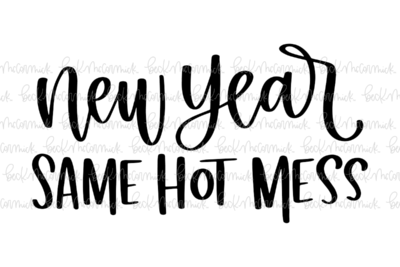 new year
SAME HOT MESS